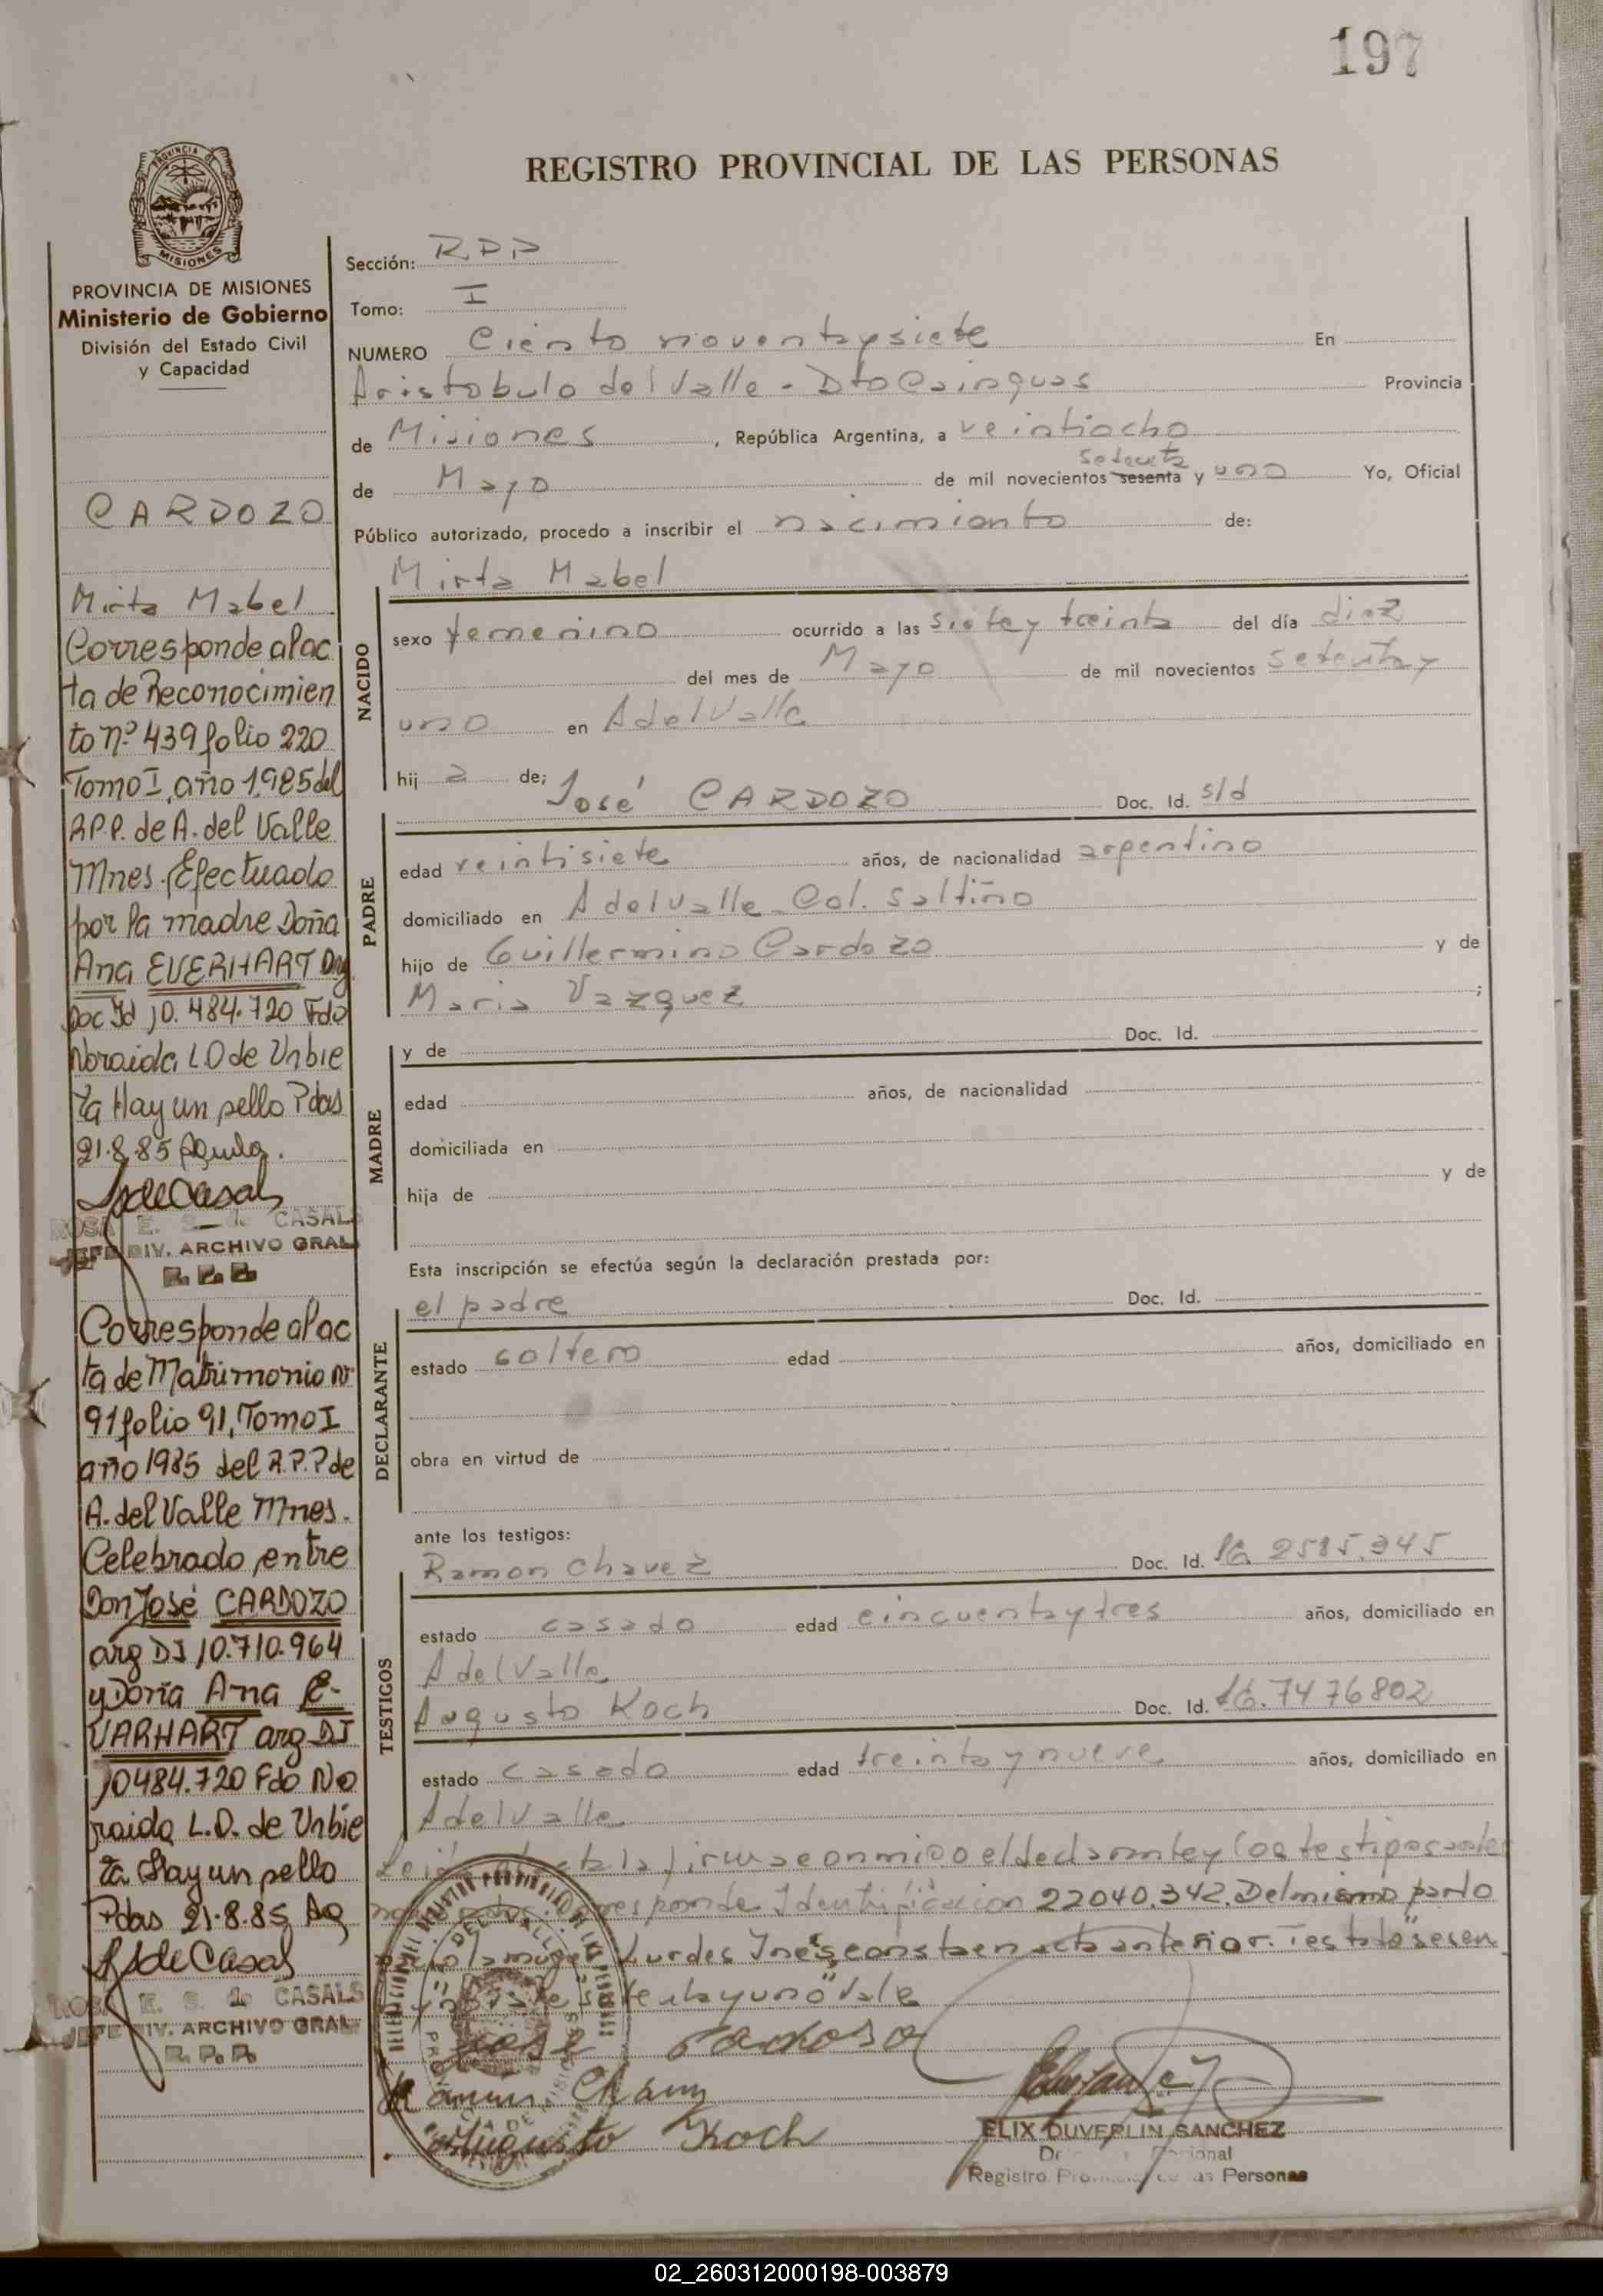 197
REGISTRO PROVINCIAL DE LAS PERSONAS
PROVINCIA DE MISIONES
MISIONES
PROVINCIA DE MISIONES
Ministerio de Gobierno
División del Estado Civil
y Capacidad
CARDOZO
Mirta Mabel
Corresponde al ac
ta de Reconocimien
to nº 439 folio 220
Tomo I, año 1985 del
R.P.P. de A. del Valle
Mnes. Efectuado
por la madre Doña
Ana EVERHART Arg
Doc Id 10.484.720 Fdo
Noraida L D de Urbie
ta Hay un sello Pdas
21.8.85
SdeCasals
ROSA E. S. de CASALS
JEFE DIV. ARCHIVO GRAL
R.P.P.
Corresponde al ac
ta de Matrimonio nº
91 folio 91, Tomo I
año 1985 del R.P.P de
A. del Valle Mnes.
Celebrado entre
Don José CARDOZO
arg DI 10.710.964
y Doña Ana E-
VARHART arg DI
10484.720 Fdo No
raida L.D. de Urbie
ta Hay un sello
Pdas 21.8.85 Ag
SdeCasals
ROSA E. S. de CASALS
JEFE DIV. ARCHIVO GRAL
R.P.P.
Sección: RPP
Tomo: I
NUMERO Ciento noventaysiete En
Aristobulo del Valle - Dto Cainguas Provincia
de Misiones, República Argentina, a veintiocho
setenta
de Mayo de mil novecientos sesenta y uno Yo, Oficial
Público autorizado, procedo a inscribir el nacimiento de:
Mirta Mabel
NACIDO
sexo femenino ocurrido a las siete y treinta del día diez
del mes de Mayo de mil novecientos setenta y
uno en AdelValle
hij a de; José CARDOZO Doc. Id. s/d
PADRE
edad veintisiete años, de nacionalidad argentino
domiciliado en AdelValle - Col. Saltiño
hijo de Guillermino Cardozo y de
Maria Vazquez ;
MADRE
y de Doc. Id.
edad años, de nacionalidad
domiciliada en
hija de y de
Esta inscripción se efectúa según la declaración prestada por:
el padre Doc. Id.
DECLARANTE
estado soltero edad años, domiciliado en
obra en virtud de
ante los testigos:
Ramon Chavez Doc. Id. 2585.945
TESTIGOS
estado casado edad cincuentaytres años, domiciliado en
AdelValle
Augusto Koch Doc. Id. 7476802
estado casado edad treinta y nueve años, domiciliado en
AdelValle
Leida el acta la firmaconmigo el declarante y los testigos antes
Identificacion 22040.342. Delmismo parto
Lurdes Inés, constaen acta anterior. Testado "sesen
ta" "setentayuno" Vale
Jose Cardoso
Ramon Chavez
Augusto Koch
ELIX DUVERLIN SANCHEZ
Registro Provincial de las Personas
02_260312000198-003879